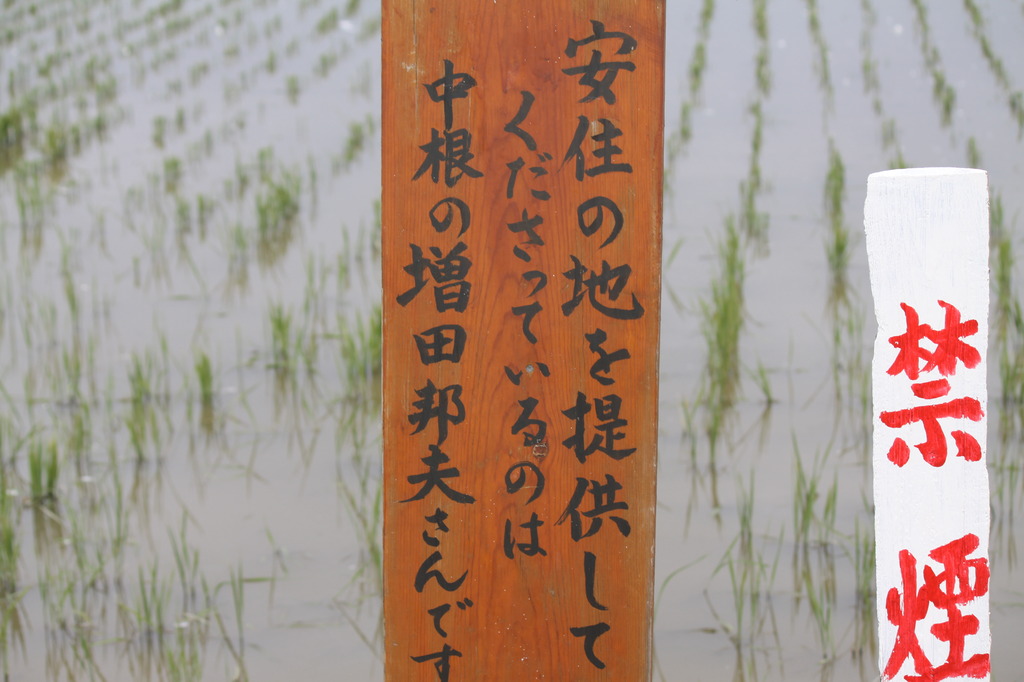 安住の地を提供して
くださっているのは
中根の増田邦夫さんです
禁煙